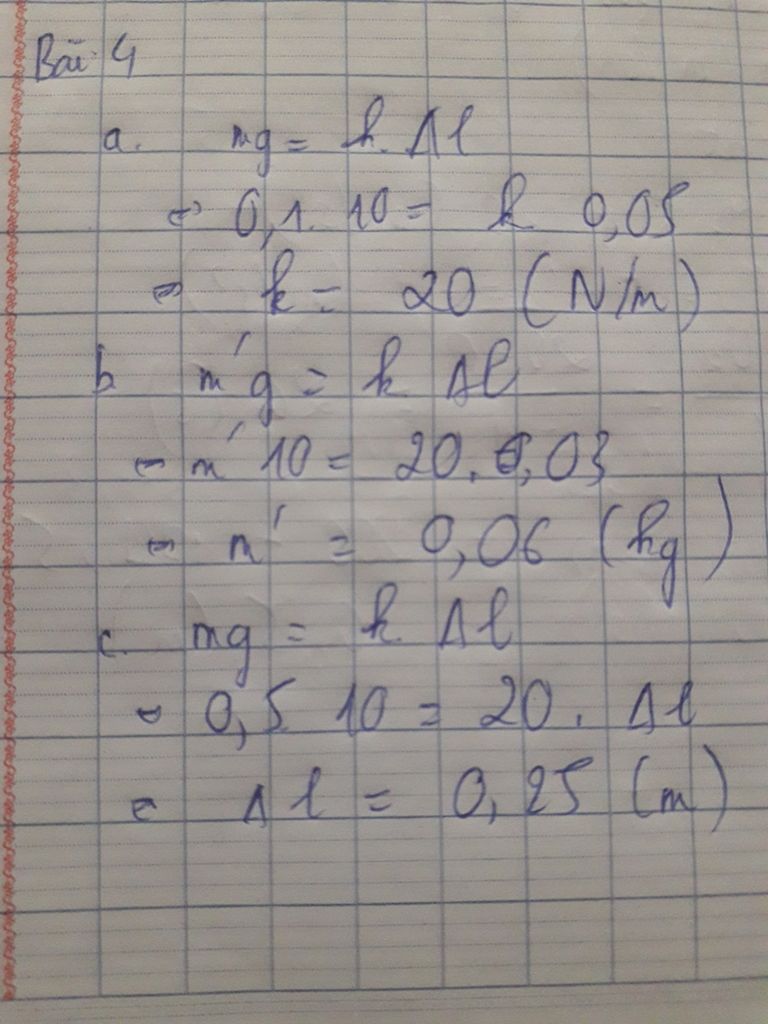 Bài 4
a. mg = k. Δl
⇔ 0,1. 10 = k 0,05
⇔ k = 20 (N/m)
b m'g = k Δl
⇔ m' 10 = 20. 0,03
⇔ m' = 0,06 (kg)
c. mg = k Δl
⇔ 0,5 10 = 20. Δl
⇔ Δl = 0,25 (m)